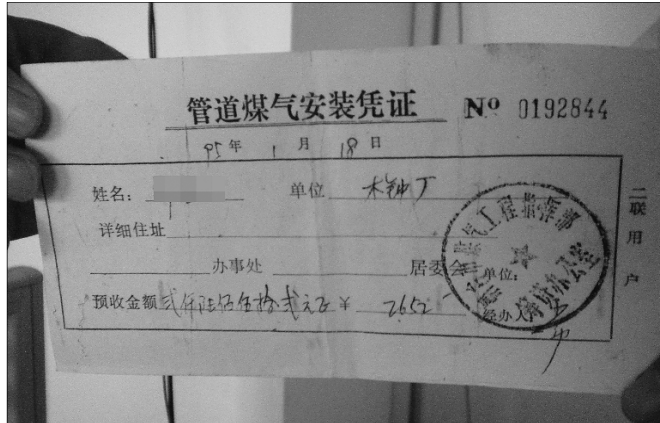 管道煤气安装凭证 Nº 0192844
95年 1月 18日
姓名： 单位 木钟厂
详细住址
办事处 居委会
单位：
预收金额 弍仟陆佰伍拾弍元正 ¥ 2652
经办人
二联用户
煤气工程指挥部
筹资办公室